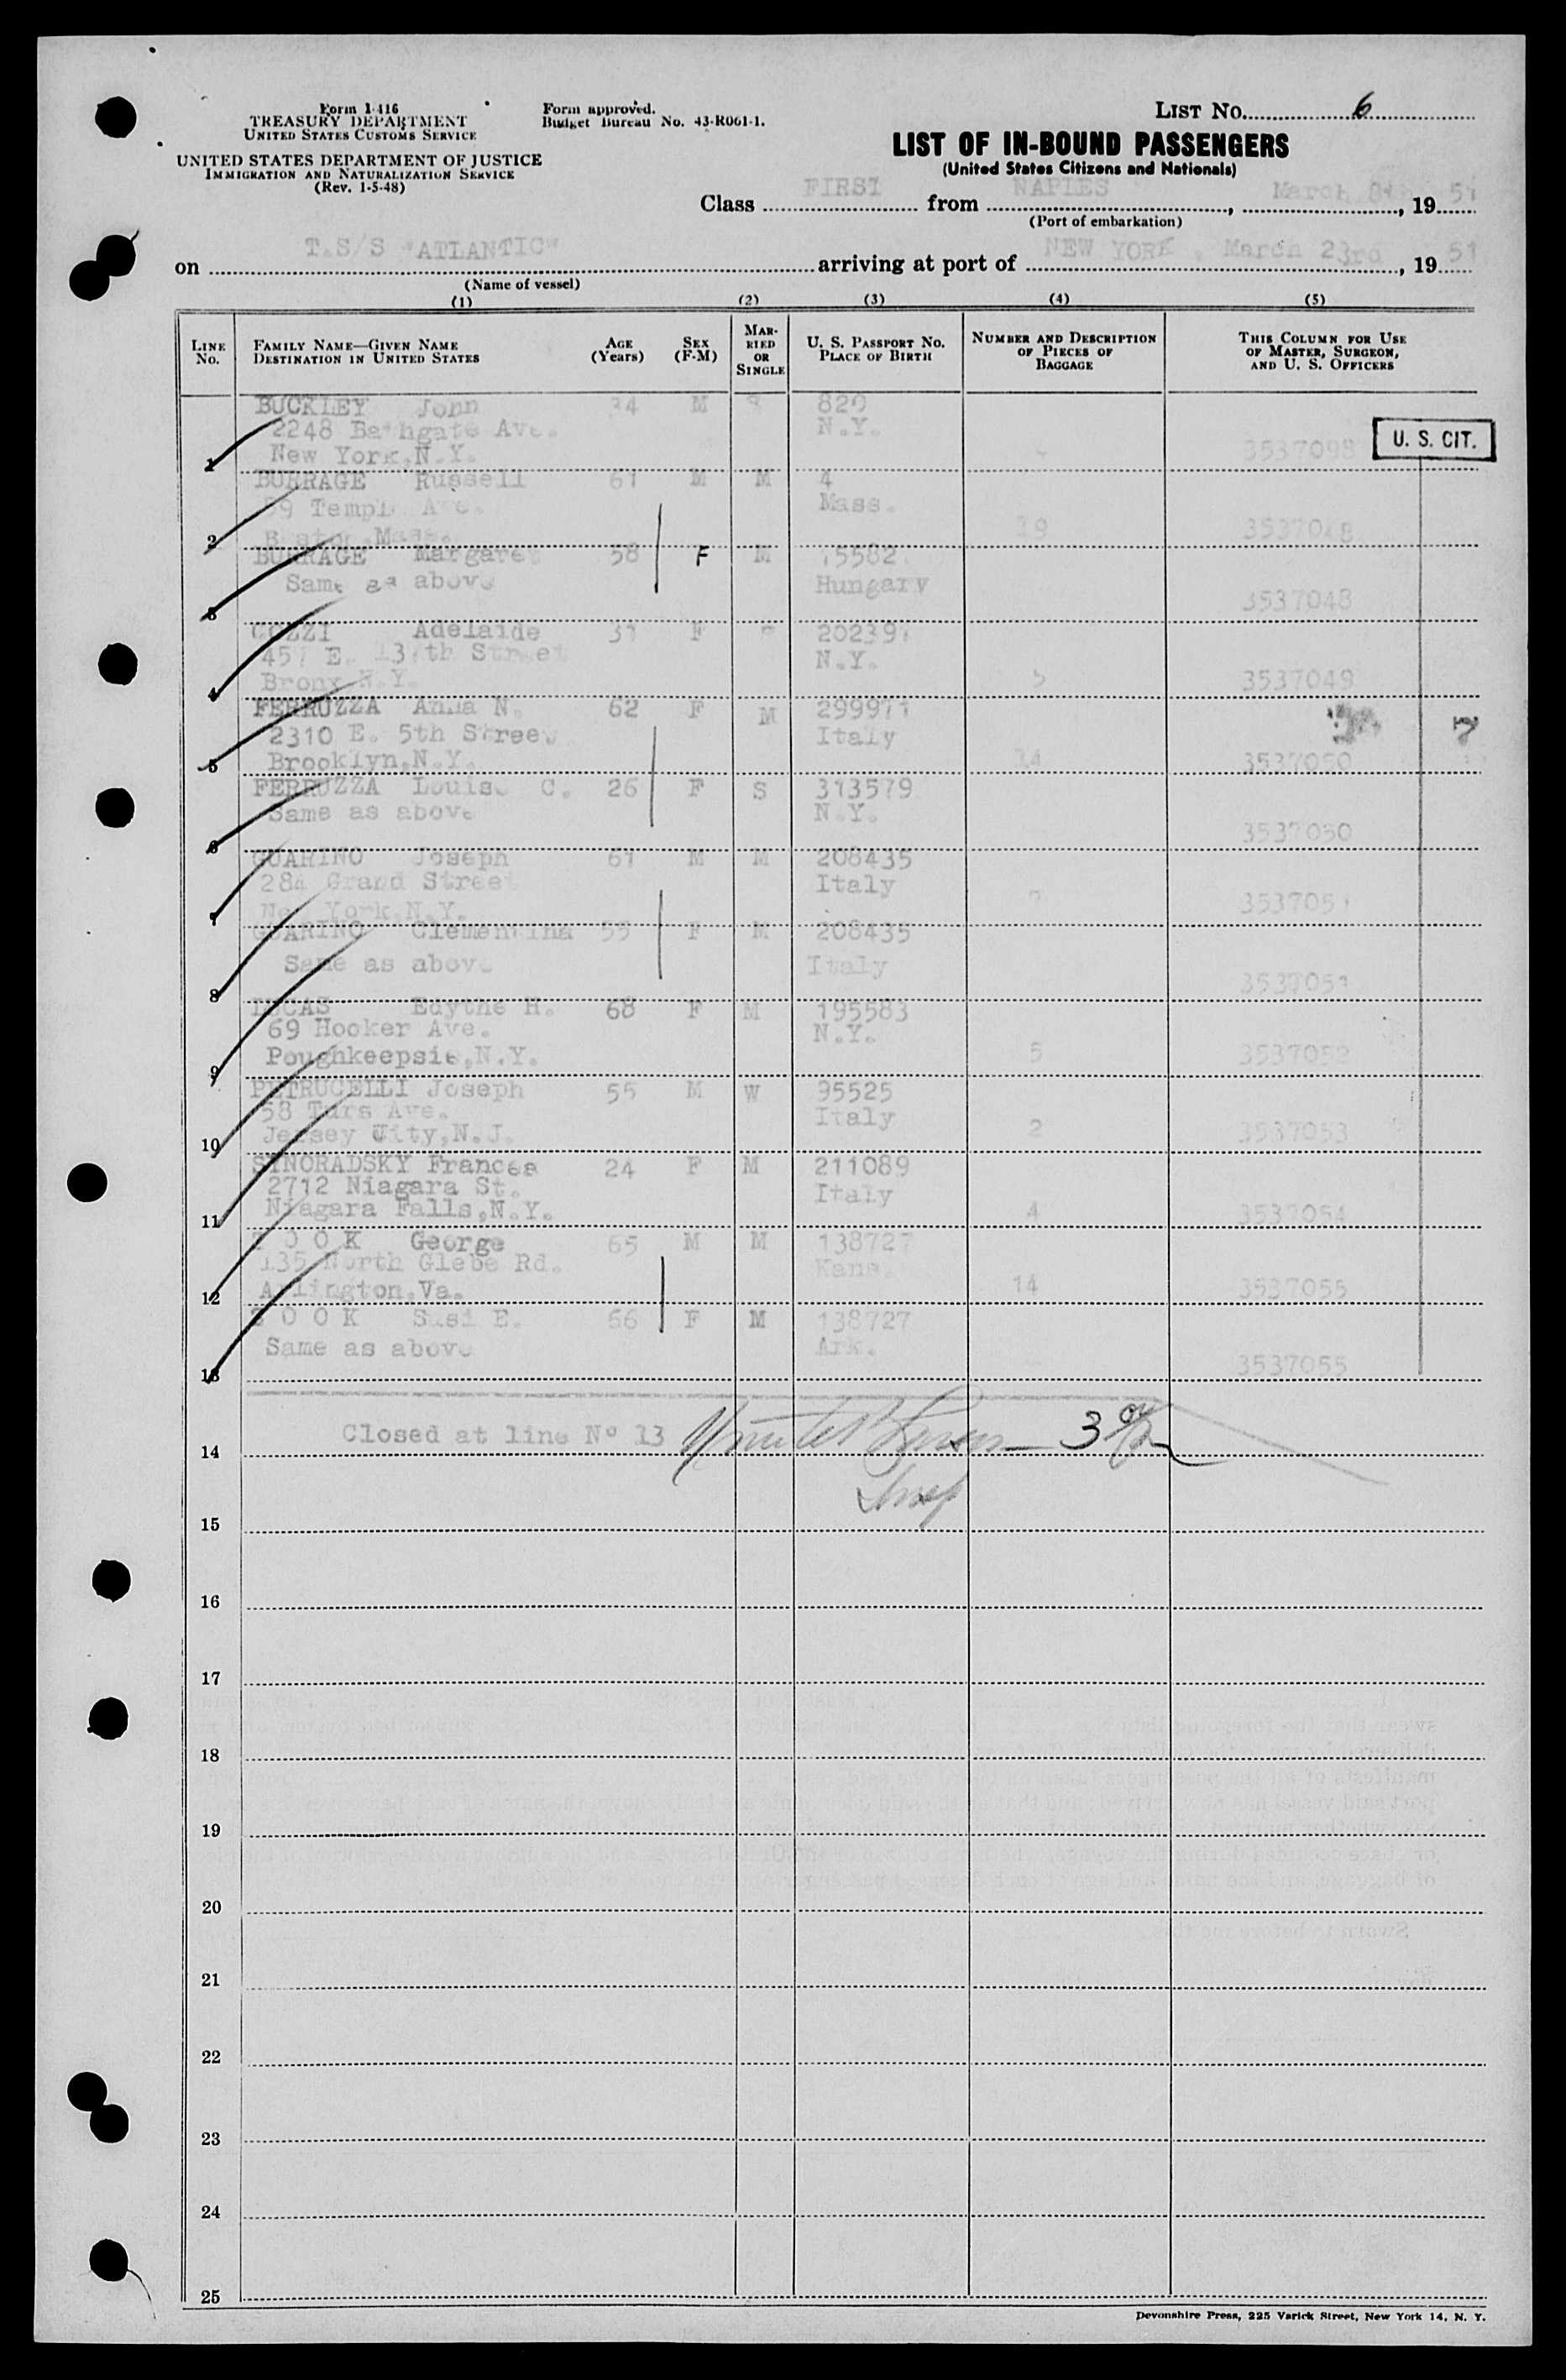 Form I-416
TREASURY DEPARTMENT
UNITED STATES CUSTOMS SERVICE
UNITED STATES DEPARTMENT OF JUSTICE
IMMIGRATION AND NATURALIZATION SERVICE
(Rev. 1-5-48)
Form approved.
Budget Bureau No. 43-R061-1.
LIST NO. 6
LIST OF IN-BOUND PASSENGERS
(United States Citizens and Nationals)
Class FIRST from NAPLES, March 8th, 1951
(Port of embarkation)
on T.S/S "ATLANTIC" arriving at port of NEW YORK, March 23rd, 1951
(Name of vessel)
(1) (2) (3) (4) (5)
LINE NO. FAMILY NAME—GIVEN NAME DESTINATION IN UNITED STATES AGE (Years) SEX (F-M) MARRIED OR SINGLE U. S. PASSPORT NO. PLACE OF BIRTH NUMBER AND DESCRIPTION OF PIECES OF BAGGAGE THIS COLUMN FOR USE OF MASTER, SURGEON, AND U. S. OFFICERS
BUCKLEY John 34 M S 820
2248 Bathgate Ave. N.Y.
1 New York,N.Y. 3537098 U. S. CIT.
BURRAGE Russell 61 M M 4
Temple Ave. Mass.
2 Boston,Mass. 19 3537048
BURRAGE Margaret 58 F M 15582
Same as above Hungary
3 3537048
COZZI Adelaide 31 F S 202391
457 E. 137th Street N.Y.
4 Bronx N.Y. 5 3537049
FERRUZZA Anna N. 62 F M 299971
2310 E. 5th Street Italy
5 Brooklyn,N.Y. 14 3537050
FERRUZZA Louise C. 26 F S 313579
Same as above N.Y.
6 3537050
GUARINO Joseph 61 M M 208435
284 Grand Street Italy
7 New York,N.Y. 3537051
GUARINO Clementina 55 F M 208435
Same as above Italy
8 3537051
LUCAS Edythe H. 68 F M 195583
69 Hooker Ave. N.Y.
9 Poughkeepsie,N.Y. 5 3537052
PETRUCELLI Joseph 55 M W 95525
58 Ave. Italy
10 Jersey City,N.J. 2 3537053
SYNORADSKY Frances 24 F M 211089
2712 Niagara St. Italy
11 Niagara Falls,N.Y. 4 3537054
O O K George 65 M M 138727
135 North Glebe Rd. Kans.
12 Arlington,Va. 14 3537055
O O K Susi E. 66 F M 138727
Same as above Ark.
13 3537055
14 Closed at line Nº 13
Insp
15
16
17
18
19
20
21
22
23
24
25
Devonshire Press, 225 Varick Street, New York 14, N. Y.